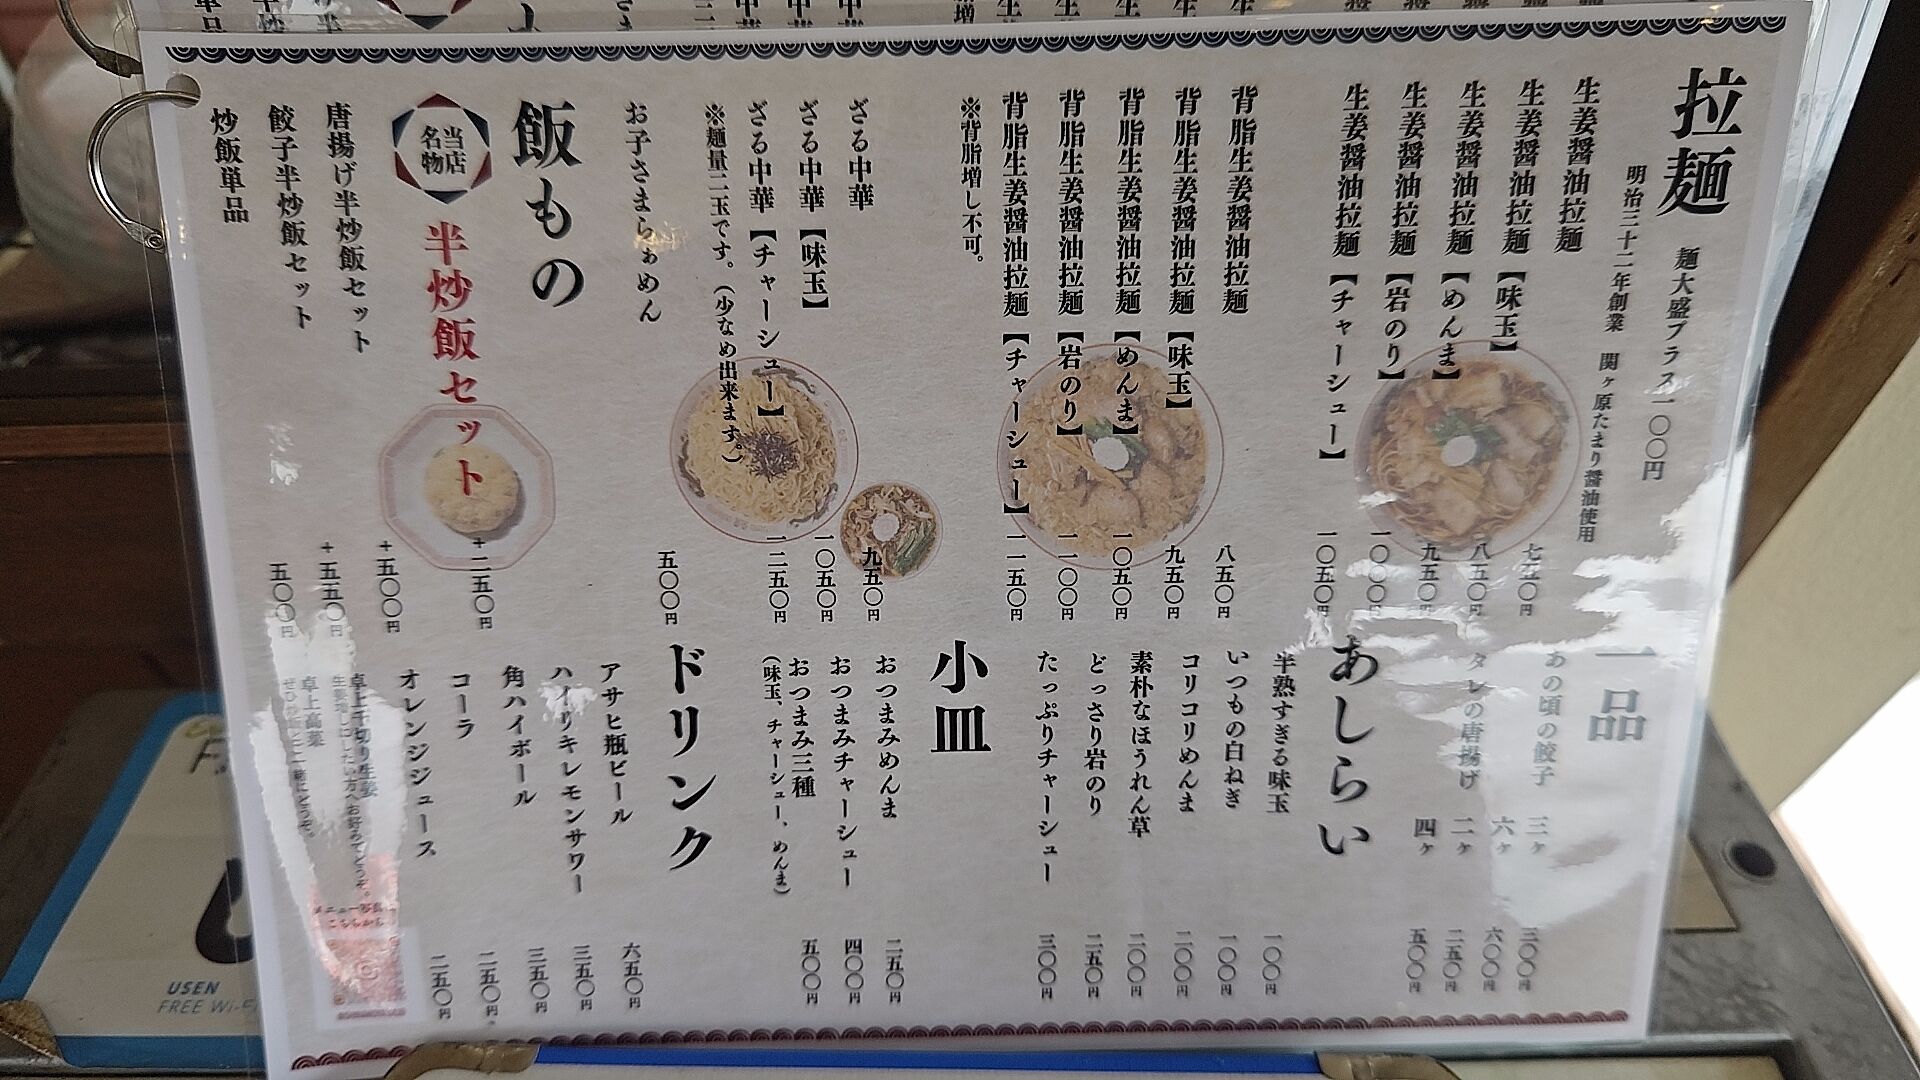 拉麺 麺大盛プラス一〇〇円
明治三十二年創業 関ヶ原たまり醤油使用
生姜醤油拉麺 七五〇円
生姜醤油拉麺【味玉】 八五〇円
生姜醤油拉麺【めんま】 九五〇円
生姜醤油拉麺【岩のり】 一〇〇〇円
生姜醤油拉麺【チャーシュー】 一〇五〇円
背脂生姜醤油拉麺 八五〇円
背脂生姜醤油拉麺【味玉】 九五〇円
背脂生姜醤油拉麺【めんま】 一〇五〇円
背脂生姜醤油拉麺【岩のり】 一一〇〇円
背脂生姜醤油拉麺【チャーシュー】 一一五〇円
※背脂増し不可。
ざる中華 九五〇円
ざる中華【味玉】 一〇五〇円
ざる中華【チャーシュー】 一二五〇円
※麺量二玉です。（少なめ出来ます。）
お子さまらぁめん 五〇〇円
飯もの
当店名物 半炒飯セット +二五〇円
唐揚げ半炒飯セット +五〇〇円
餃子半炒飯セット +五五〇円
炒飯単品 五〇〇円
一品
あの頃の餃子 三ヶ 三〇〇円
六ヶ 六〇〇円
タレの唐揚げ 二ヶ 二五〇円
四ヶ 五〇〇円
あしらい
半熟すぎる味玉 一〇〇円
いつもの白ねぎ 一〇〇円
コリコリめんま 二〇〇円
素朴なほうれん草 二〇〇円
どっさり岩のり 二五〇円
たっぷりチャーシュー 三〇〇円
小皿
おつまみめんま 二五〇円
おつまみチャーシュー 四〇〇円
おつまみ三種 五〇〇円
（味玉、チャーシュー、めんま）
ドリンク
アサヒ瓶ビール 六五〇円
ハイリキレモンサワー 三五〇円
角ハイボール 三五〇円
コーラ 二五〇円
オレンジジュース 二五〇円
卓上千切り生姜
生姜増しにしたい方へお好みでどうぞ。
卓上高菜
こちらから
USEN
FREE Wi-Fi